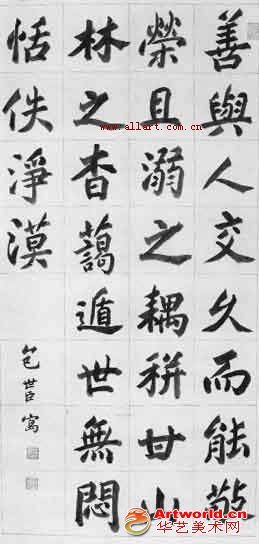 善與人交久而能敬
榮且溺之耦耕甘山
林之杳藹遁世無悶
恬佚淨漠
包世臣寫
www.allart.com.cn
Artworld.cn
华艺美术网